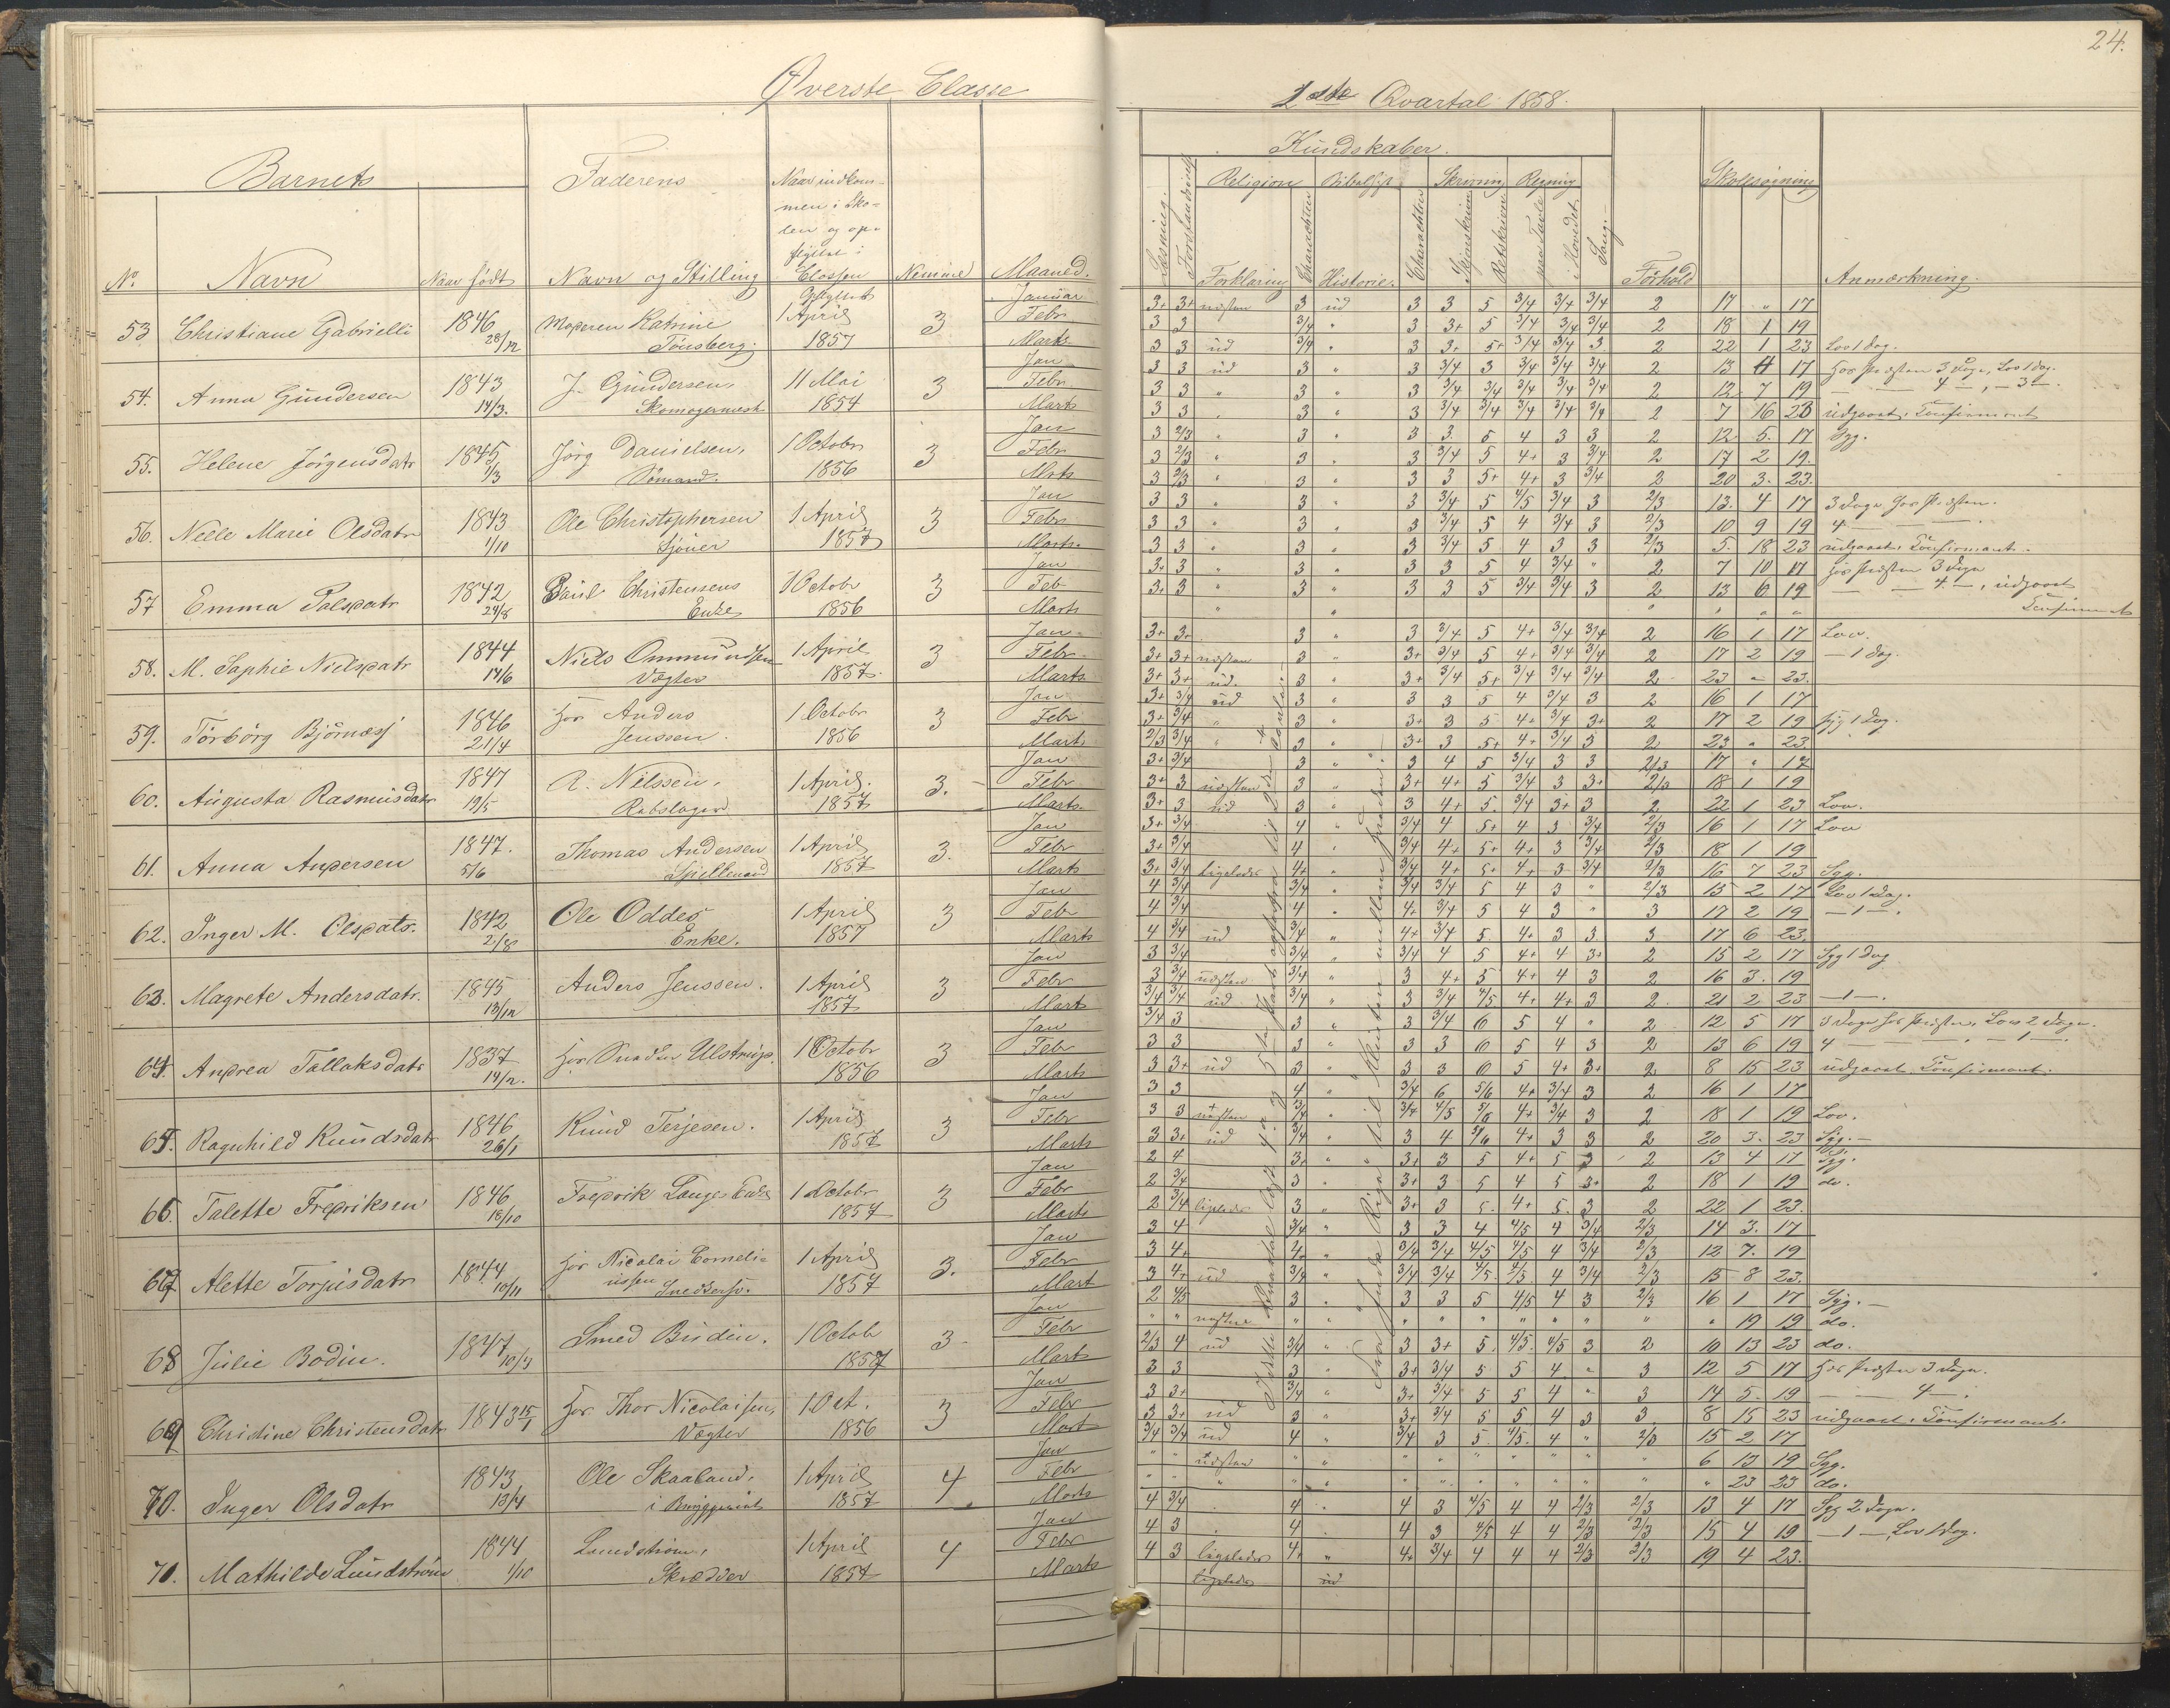 24.
Øverste Classe
1ste Qvartal 1858.
Barnets
Faderens
Naar indkom-
men i Sko-
len og op-
flyttet i
Classen
Kundskaber.
Religion Bibelhist. Skrivning Regning
Skolesøgning
No. Navn Naar født Navn og Stilling Nemme Maaned.
Læsning. Forstandsøvelse Forklaring Charakteer Historie. Charakteer Skjønskrivn Retskrivn paa Tavle i Hovedet. Sang. Forhold Anmærkning.
53 Christiane Gabrielli 1846 28/12 Moderen Katrine Tønsberg. Opflyttet 1 April 1857 3
Januar 3+ 3+ næsten 3 ud 3 3 5 3/4 3/4 3/4 2 17 " 17
Febr 3 3 3/4 " 3 3+ 5 3/4 3/4 3/4 2 18 1 19
Marts 3 3 ud 3/4 " 3 3+ 5+ 3/4 3/4 3 2 22 1 23 Lov 1 dag.
54. Anna Gundersen 1843 14/3. J. Gundersen, Skomagermest 11 Mai 1854 3
Jan 3 3 ud 3 " 3 3/4 3 3/4 3/4 3/4 2 13 4 17 Hos Præsten 3 Dage, Lov 1 dag.
Febr 3 3 " 3 " 3 3/4 3/4 3/4 3/4 3/4 2 12 7 19 — 4 —, — 3 —.
Marts 3 3 " 3 " 3 3/4 3/4 3/4 3/4 3/4 2 7 16 23 udgaaet, Confirmant
55. Helene Jörgensdatr 1845 2/3 Jörg Danielsen, Sömand. 1 Octobr 1856 3
Jan 3 2/3 " 3 " 3 3 5 4 3 3 2 12 5 17 Syg.
Febr 3 2/3 " 3 " 3 3/4 5 4+ 3 3/4 2 17 2 19.
Mrts 3 2/3 " 3 " 3 3 5+ 4+ 3 3/4 2 20 3 23.
56. Neele Marie Olsdatr 1843 1/10 Ole Christophersen Sjöuer 1 April 1857 3
Jan 3 3 " 3 " 3 3/4 5 4/5 3/4 3 2/3 13. 4 17 3 Dage hos Præsten.
Febr 3 3 " 3 " 3 3/4 5 4 3/4 3 2/3 10 9 19 4 — — —.
Marts. 3 3 " 3 " 3 3/4 5 4 3 3 2/3 5. 18 23 udgaaet, Confirmant.
57 Emma Palsdatr 1842 24/8 Paul Christensens Enke 1 Octobr 1856 3
Jan 3+ 3 " 3 " 3 3 5 4 3/4 " 2 7 10 17 Hos Præsten 3 Dage
Feb 3+ 3 " 3 " 3 3 5 3/4 3/4 3 2 13 6 19 — — 4 —, udgaaet
Marts " " " " " " Confirmant
58. M. Sophie Nielsdatr 1844 14/6 Niels Ommundsen Vægter 1 April 1857. 3
Jan 3+ 3+ 3 " 3 3/4 5 4+ 3/4 3/4 2 16 1 17 Lov.
Febr 3+ 3+ næsten 3 " 3+ 3/4 5 4+ 3/4 3/4 2 17 2 19 — 1 dag.
Marts 3+ 3+ ud. 3 " 3+ 3/4 5+ 3/4 3/4 3/4 2 23 " 23.
59. Torborg Björnæs 1846 21/4 hos Anders Jenssen. 1 Octobr 1856 3
Jan 3+ 3/4 ud 3 " 3 3 5 4 3/4 3 2 16 1 17
Febr 3+ 3/4 " 3 " 3+ 3 5 4+ 3/4 3+ 2 17 2 19 Syg 1 Dag.
Mart 2/3 3/4 " 3 " 3+ 3 5+ 4+ 3/4 3 2 23 " 23.
60. Augusta Rasmusdatr 1847 19/5 R. Nilssen, Rebslager 1 April. 1857 3.
Jan 3+ 3/4 3 " 3 4 5 3/4 3 3 2/3 17 " 17
Febr 3+ 3 næsten 3 " 3+ 4+ 5 3/4 3 3+ 2/3 18 1 19
Marts 3+ 3 ud 3 " 3 4+ 5 3/4 3+ 3 2 22 1 23 Lov.
61. Anna Andersen 1847. 5/6 Thomas Andersen Spillemand 1 April 1857 3.
Jan 3+ 3/4 4 " 3/4 4 5+ 4 3 3/4 2/3 16 1 17 Lov
Febr 3+ 3/4 4 " 3/4 4+ 5+ 4+ 3 3/4 2/3 18 1 19
Marts 3+ 3/4 ligeledes 4+ " 3/4 4+ 5+ 4+ 3 3/4 2/3 16 7 23 Syg.
62. Inger M. Olsdatr. 1842 2/8 Ole Oddes Enke. 1 April 1857 3
Jan 4 3/4 3/4 " 3/4 3/4 5 4 3 " 2/3 15 2 17 Lov 1 dag.
Febr 4 3/4 4 " 4+ 3/4 5 4 3 " 3 17 2 19 — 1 —.
Marts 4 3/4 ud 3/4 " 4+ 3/4 5 4+ 3 3 3 17 6 23.
63. Magrete Andersdatr. 1845 13/12 Anders Jenssen. 1 April 1857 3
Jan 3 3/4 3/4 " 3/4 4 5 4+ 4 3+ 2 15 2 17 Syg 1 Dag
Febr 3 3/4 næsten 3/4 " 3 4+ 5 4+ 4 3 2 16 3 19
Marts 3/4 3/4 ud 3/4 " 3 3/4 4/5 4+ 4+ 3 2 21 2 23 — 1 —.
64. Andrea Tallaksdatr 1837 14/2. hos Snedker Ulstrup. 1 Octobr 1856 3
Jan 3/4 3 3 " 3 3/4 6 5 4 " 2 12 5 17 3 Dage hos Præsten, Lov 2 Dage.
Febr 3 3 3 " 3 3 6 5 4 3 2 13 6 19 4 — — —, — 1 —.
Marts 3 3+ ud 3 " 3 3 6 5 4+ 3+ 2 8 15 23 udgaaet, Confirmant.
65. Ragnhild Knudsdatr 1846 26/1 Knud Terjesen. 1 April 1857 3
Jan 3 3 4 " 3/4 6 5/6 4+ 3/4 3 2 16 1 17
Febr 3 3 næsten 3/4 " 3/4 4/5 5/6 4+ 3/4 3 2 18 1 19 Lov.
Marts 3 3+ ud 3/4 " 3 4 5/6 4+ 3 3 2 20 3 23 Syg. —
66. Talette Fredriksen 1846 18/10 Fredrik Langes Enke 1 Octobr 1857 3
Jan 2 4 3+ " 3+ 3 5 4+ 5 3 2 13 4 17 Syg.
Febr 2 3/4 3 " 3+ 3 5 4 5 3+ 2 18 1 19 do.
Marts 2 3/4 ligeledes 3 " 3+ 3 5 4+ 5 3 2 22 1 23.
67 Alette Torjusdatr 1844 10/11 hos Nicolai Corneliussen Snedkersv. 1 April 1857 3.
Jan 3 4 3/4 " 3 3 4 4/5 4 3/4 2/3 14 3 17
Febr 3 4+ 4+ " 3/4 3/4 4/5 4/5 4 3/4 2/3 12 7 19
Mart 3 4+ ud 3/4 " 3/4 3/4 4/5 4/5 4 3/4 2/3 15 8 23.
68 Julie Bodin. 1847 10/3 Smed Budin. 1 Octob 1857 3
Jan 2 4/5 3 " 3 3 5 4/5 4 3 2/3 16 1 17 Syg. —
Febr " " næsten " " " " " " " " " " 19 19 do.
Marts 2/3 4 ud 3/4 " 3 3+ 5 4/5 4/5 3 2 10 13 23 do.
69 Christine Christensdatr 1843 15/1 hos Thor Nicolaisen, Vægter 1 Oct. 1856 3
Jan 3 3 3 " 3+ 3/4 5 5 4 " 3 12 5 17 Hos Præsten 3 Dage.
Febr 3 3+ 3/4 " 3+ 3/4 5 5 4 " 3 14 5 19 — — 4 —.
Mart 3 3+ ud 3 " 3+ 3/4 5 5 4 3 3 8 15 23 udgaaet, Confirmant.
70. Inger Olsdatr 1843 13/4 Ole Skaaland, i Bryggeriet 1 April 1857 4
Jan 3/4 3/4 ud 4 " 3/4 3 5 4/5 4 " 2/3 15 2 17
Febr " " næsten " " " " " " " " " 6 13 19 Syg.
Marts " " " " " " " " " " " " " 23 23 do.
71. Mathilde Lundström 1844 1/10 Lundström, Skrædder 1 April 1857 4
Jan 4 3/4 4 " 4 3 4/5 4 4 2/3 2/3 13 4 17 Syg 2 Dage.
Febr 4 3 4 " 4 3 4/5 4 4 2/3 2/3 15 4 19 — 1 —, Lov 1 dag.
Marts 4 3 ligeledes 4+ " 4+ 3/4 4 4 4 2/3 2/3 19 4 23.
ligeledes ud